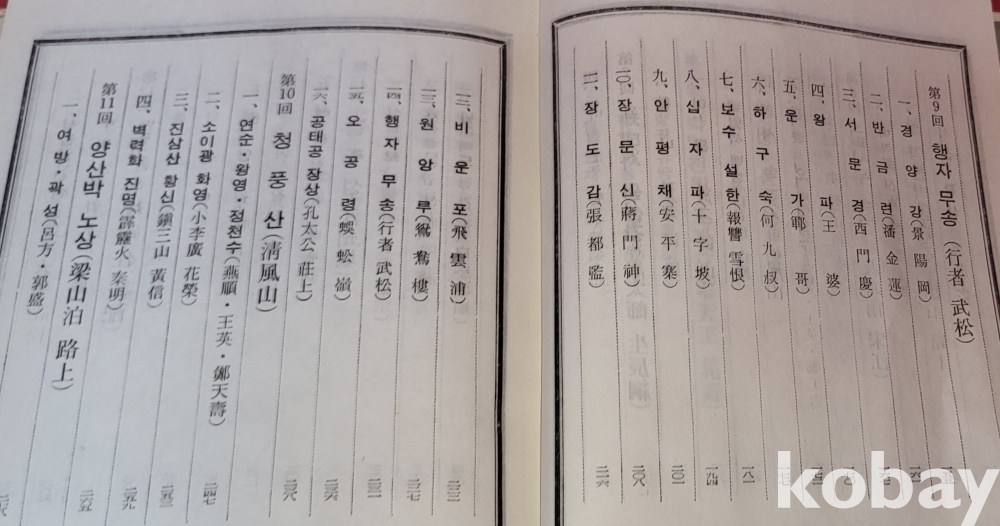 第9回 행자 무송 (行者 武松)
一、경양강(景陽岡)
二、반금련(潘金蓮)
三、서문경(西門慶)
四、왕파(王婆)
五、운가(鄆哥)
六、하구숙(何九叔)
七、보수설한(報讐雪恨)
八、십자파(十字坡) 一九四
九、안평채(安平寨) 二〇一
一〇、장문신(蔣門神) 二〇八
一一、장도감(張都監) 二一六
一二、비운포(飛雲浦) 二二二
一三、원앙루(鴛鴦樓) 二二七
一四、행자무송(行者武松) 二三一
一五、오공령(蜈蚣嶺)
一六、공태공 장상(孔太公 莊上) 二三六
第10回 청풍산(淸風山)
一、연순·왕영·정천수(燕順·王英·鄭天壽)
二、소이광 화영(小李廣 花榮) 二四七
三、진삼산 황신(鎭三山 黃信) 二五三
四、벽력화 진명(霹靂火 秦明) 二五九
第11回 양산박 노상(梁山泊 路上) 二六五
一、여방·곽성(呂方·郭盛)
kobay